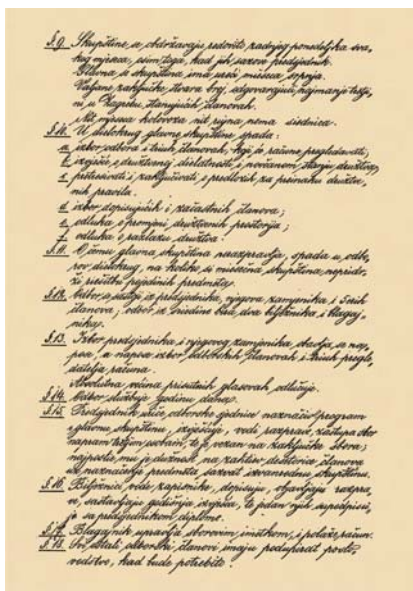 §.9. Skupštine se obdržavaju redovito zadnjeg ponedeljka sva-
kog mjeseca, osim toga, kad jih sazove predsjednik.
Glavna se skupština ima mjeseca srpnja.
Valjane zaključke stvara broj, odgovarajući najmanje
ni u Zagrebu stanujućih članovah.
Niti mjeseca kolovoza nit rujna nema sjednica.
§.10. U djelokrug glavne skupštine spada:
a, izbor odbora i triuh članovah, koji će račune pregledavati;
b, izvješće o družtvenoj djelatnosti, novčanom stanju družtva,
c, pretresivati i zaključivati o predlozih za preinaku družtve-
nih pravila.
d, izbor dopisujućih i začastnih članova;
e, odluka o promjeni družtvenih prostorija;
f, odluka o razlazu družtva.
§.11. O čemu glavna skupština nerazpravlja, spada u odbo-
rov djelokrug, na koliko si mjesečna skupština nepridr-
ži pojedinih predmeta.
§.12. Odbor sastoji iz predsjednika, njegova zamjenika i
članova; odbor iz sredine bira dva bilježnika i blagaj-
nika.
§.13. Izbor predsjednika i njegovog zamjenika, obavlja se na-
pose, a napose izbor odborskih članovah i triuh pregle-
datelja računa.
Absolutna većina prisutnih glasovah odlučuje.
§.14. Odbor služuje godinu dana.
§.15. Predsjednik odborske sjednice naznačiv program
i glavne skupštine, izvješćuje, vodi razprave, zastupa zbor
napram težim osobam, te je vezan na zaključke zbora;
najposlie mu je dužnost, na zahtiev članova
uz naznačenje predmeta sazvati izvanrednu skupštinu.
§.16. Bilježnici vode zapisnike, dopisuju, objavljaju razpra-
ve, sastavljaju godišnja izvješća, te jedan njih supodpisu-
je sa predsjednikom diplome.
§.17. Blagajnik upravlja sborovim imetkom, i polaže račun.
§.18. Svi ostali odborski članovi imaju poduprieti
vodstvo, kad bude potrebito.